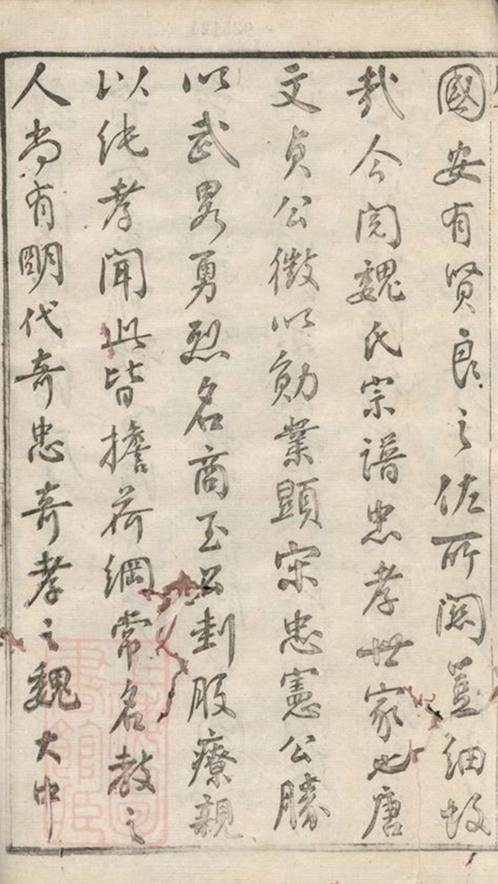 國安有賢良之佐所関豈細故
哉今閱魏氏宗譜忠孝世家也唐
文貞公徵以勛業顯宋忠憲公勝
以武畧勇烈名商玉公刲股療親
以純孝聞此皆擔荷綱常名教之
人尚有明代奇忠奇孝之魏大中